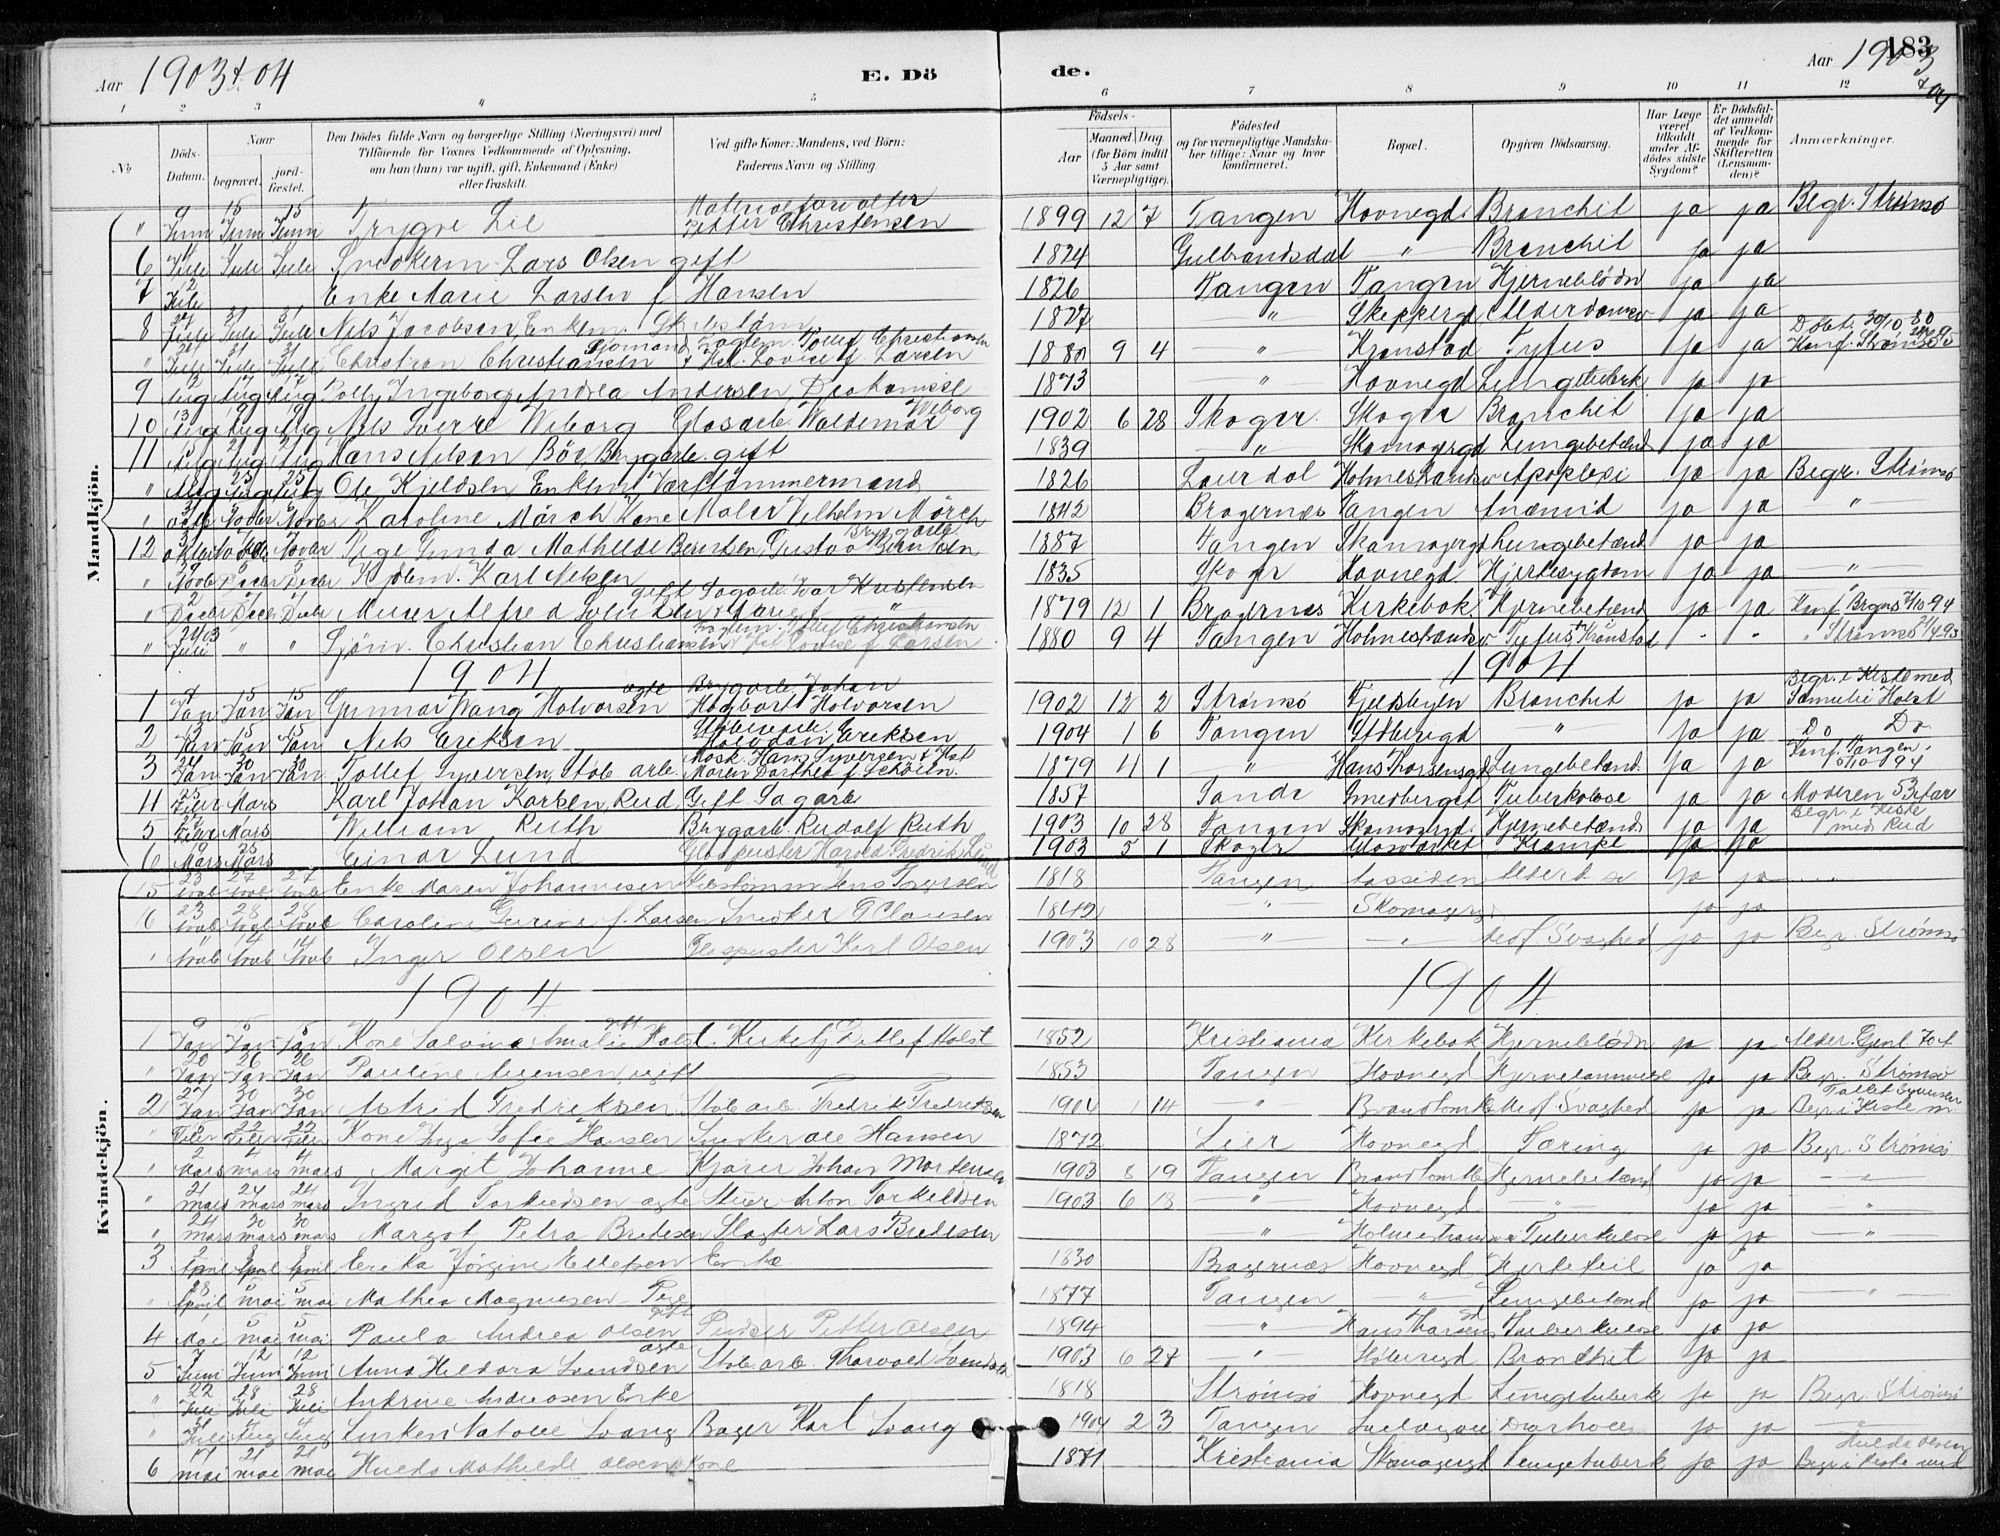 183
Aar 1903 & 04
E. Döde.
Aar 1903 & 04
1 2 3 4 5 6 7 8 9 10 11 12
No
Döds-Datum.
Naar
begravet.
jordfæstet.
Den Dödes fulde Navn og borgerlige Stilling (Næringsvei) med Tilföiende for Voxnes Vedkommende af Oplysning, om han (hun) var ugift, gift, Enkemand (Enke) eller fraskilt.
Ved gifte Koner: Mandens, ved Börn: Faderens Navn og Stilling.
Födsels-
Aar
Maaned Dag
(for Börn indtil 5 Aar samt Værnepligtige).
Födested og for værnepligtige Mandskaber tillige: Naar og hvor konfirmeret.
Bopæl.
Opgiven Dödsaarsag.
Har Læge været tilkaldt under Afdödes sidste Sygdom?
Er Dödsfaldet anmeldt af Vedkommende for Skifteretten (Lensmanden)?
Anmærkninger.
Mandkjön.
" 9 Juni 15 Juni 15 Juni Trygve Lie Materialforvalter Petter Christensen 1899 12 7 Tangen Havnegd. Bronchit ja ja Begr. Strømsø
6 Juli Juli Juli Snedkerm. Lars Olsen gift 1824 Gulbrandsdal " Bronchit ja ja
7 12 Juli Enke Marie Larsen f. Hansen 1826 Tangen Tangen Hjerneblödn ja ja
8 27 Juli 31 Juli 31 Juli Nils Jacobsen, Enkem. Skibstöm 1827 " Skeppergd Alderdomssv ja ja
" Juli 31 Juli 31 Juli Christian Christiansen Sjömand, Logtem. Tollef Christiansen & Hst. Lovise f. Larsen 1880 9 4 " Kronstad Tyfus ja ja Döbt. 30/10 80 Konf. Strømsø
9 2 Aug 7 Aug 7 Aug Polly Ingeborg Andrea Andersen, Diakonisse 1873 " Havnegd Lungetuberk ja ja
10 13 Aug 19 Aug Aug Nils Sverre Wiborg Glasarb. Waldemar Wiborg 1902 6 28 Skoger Skoger Bronchit ja ja
11 Aug 21 Aug 21 Aug Hans Nilsen Böe Brygarb. gift 1839 " Skomagergd Lungebetænd ja ja
" Aug 25 Aug 25 Aug Ole Kjeldsen Enkem Værftömmermand 1826 Laurdal Holmestrandsv Apoplexi ja ja Begr. Strømsø
" Octb Novbr Novbr Karoline Mörch Kone Maler Vilhelm Mörch 1842 Bragernæs Tangen Anæmid ja ja "
12 Oktbr Novbr Novbr Pige Gunda Mathilde Berntsen, Gustav Berntsen Brygarb 1887 Tangen Skomagergd Lungebetænd ja ja
" Novbr 5 Decbr 5 Decbr Kjölem. Karl Nilsen 1835 Skoger Havnegd. Hjertesygdom ja ja "
" 2 Decbr Decbr Decbr Murer Alfred gift Sagarb. Ivar Kristensen & Marie f. " 1879 12 1 Bragernæs Kirkebak Hjernebetænd ja ja Konf. Bragnæs 7/10 94
" 24 03 Juli " " Sjöm. Christian Christiansen Logtem. Tollef Christiansen & Hst. Lovise f. Larsen 1880 9 4 Tangen Holmestrandsv. Tyfus Kronstad " " " Strømsø 21/4 95
1904
1904
1 9 Jan 15 Jan 15 Jan Gunnar Wang Halvorsen ægte Brygarb. Johan Hagbart Halvorsen 1902 12 2 Strømsø Fjeldbyen Bronchit ja ja Begr. i Kiste med Samelie Holst
2 13 Jan 15 Jan 15 Jan Nils Eriksen Stöberiarb. Halvdan Eriksen 1904 1 6 Tangen Stöberigd " ja ja Do Do
3 24 Jan 30 Jan 30 Jan Tollef Syversen, Stöb. arb. Mask. Hans Syversen & Hst Maren Dorthea f. Schöien. 1879 4 1 " Hans Thorsensgd Lungebetænd. ja ja Konf. Tangen 0/10 94
4 25 Febr Mars Karl Johan Karlsen, Rud, Gift Sagarb 1857 Sande Smedberget Tuberkolose ja ja Moderen 53 1/2 aar
5 27 Febr Mars William Ruth Brygarb. Rudolf Ruth 1903 10 28 Tangen Skomagergd. Hjernebetænd. ja ja Begr. i Kiste med Rud
6 9 Mars 25 Mars Einar Lund Glaspuster Harald Fredrik Lund 1903 5 1 Skoger Glasværket Krampe ja ja
Kvindekjön.
15 23 Novbr 27 Novbr 27 Novbr Enke Maren Johannesen Skibstömm Jens Torgersen 1818 Tangen Losseiden Alderd. sv ja ja "
16 23 Novb 28 Novb 28 Novb Caroline Gurine f. Larsen Snedker G Clausen 1842 " Skomagergd ja ja
" " Novb 14 Novb 14 Novb Inger Olsen Glaspuster Karl Olsen 1903 10 28 " " Medf. Svaghed ja ja Begr. Strømsø
1904
1904
1 9 Jan 15 Jan 15 Jan Kone Salvine Amalie Holst gift Kirketj Detlef Holst 1852 Kristiania Kirkebak Hjerneblödn ja ja Alder. Gml 70 1
" 20 Jan 26 Jan 26 Jan Pauline Svensen ugift 1853 Tangen Havnegd Hjernelammelse ja ja Begr. Strømsø
2 27 Jan 30 Jan 30 Jan Astrid Fredriksen Stöb arb Fredrik Fredriksen 1904 1 14 " Brandtomten Medf Svaghed ja ja Begr i Kiste m. Tollef Syversen
" Febr 22 Febr 22 Febr Kone Inga Sofie Hansen Snedker Ole Hansen 1872 Lier Havnegd Tæring ja ja Begr. Strømsø
" 2 Mars 4 mars 4 mars Margit Johanne Kjörer Johan Mortensen 1903 8 19 Tangen Brandtomten Hjernebetænd ja ja "
" 21 mars 24 mars 24 mars Ingrid Torkildsen ægte Stuer Anton Torkildsen 1903 6 13 " Havnegd " ja ja "
" 24 mars 30 mars 30 mars Margot Petra Bredesen Slagter Lars Bredesen " Holmestrandsv Tuberkulose ja ja "
3 2 April 8 April 8 April Erika Jörgine Ellefsen Enke 1830 Bragernæs Havnegd Hjertefeil ja ja
" 28 April 5 mai 5 mai Mathea Magnusen Pige 1877 Tangen " Lungebetænd ja ja "
4 Mai 5 mai 5 mai Paula Andrea Olsen gift Pudser Petter Olsen 1894 " Hans Thorsens gd Tuberkulose ja ja
5 7 Juni 12 Juni 12 Juni Anna Heldora Svendsen ægte Stöb arb. Thorvald Svendsen 1903 6 27 " Stöberigd Bronchit ja ja
" 22 Juli 28 Juli 28 Juli Andrine Andreasen Enke 1818 Strömsö Havnegd Lungetuberk ja ja Begr. Strømsø
" 31 Juli 4 Aug 4 Aug Natalie Svang Bager Karl Svang 1904 2 3 Tangen ja ja "
6 17 mai 21 mai 21 mai Hulda Mathilde Olsen Kone 1871 Kristiania Skomagergd Lungetuberk ja ja Hulda Olsen Begr i Kiste med